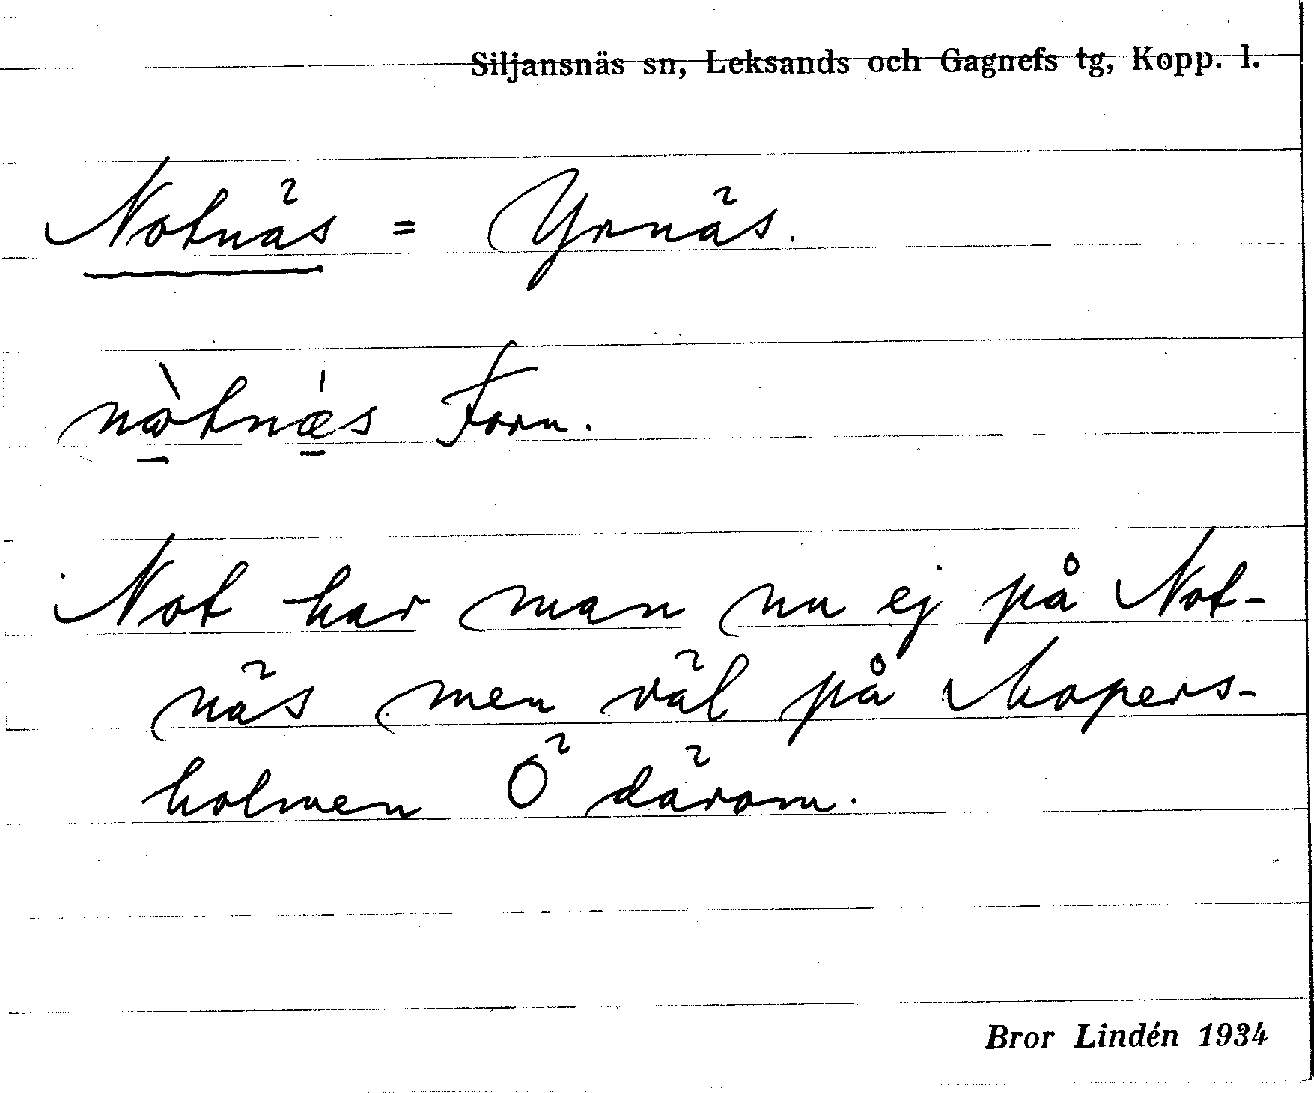 Siljansnäs sn, Leksands och Gagnefs tg, Kopp. l.
Notnäs = Yrnäs.
nòtnǽs Forn.
Not har man nu ej på Not-
näs men väl på Mopers-
holmen Ö därom.
Bror Lindén 1934